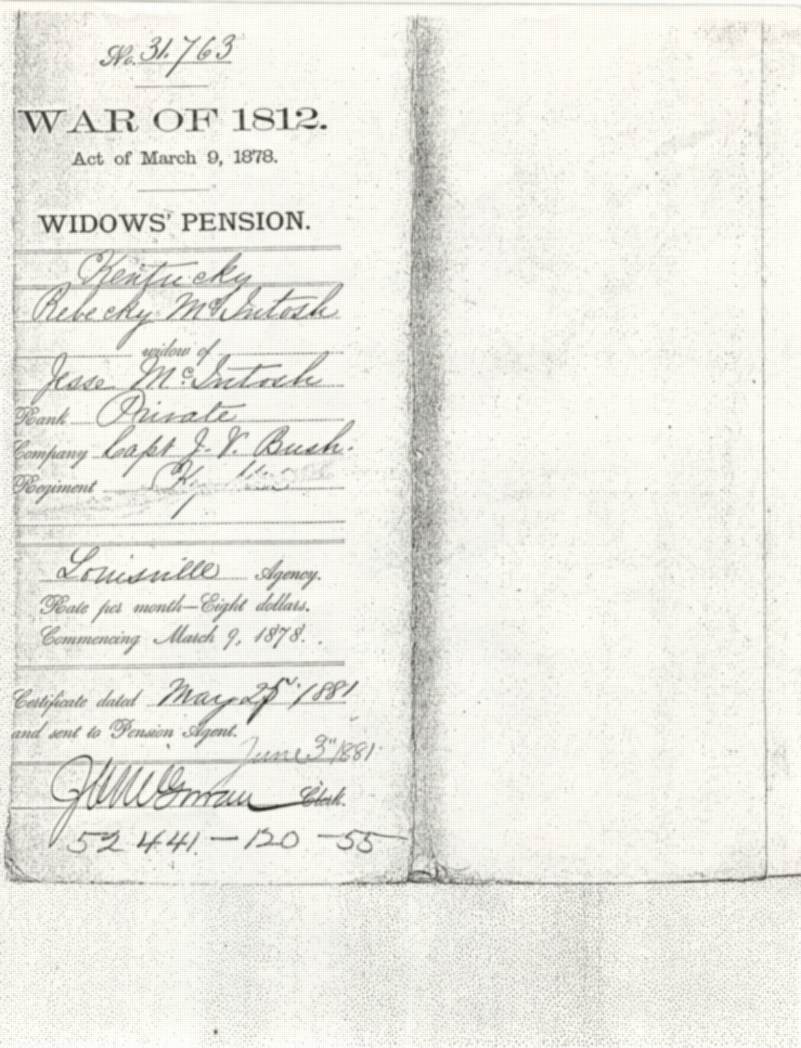 No. 31.763
WAR OF 1812.
Act of March 9, 1878.
WIDOWS' PENSION.
Kentucky
Rebecky McIntosh
widow of
Jesse McIntosh
Rank Private
Company Capt J. V. Bush.
Regiment Ky
Louisville Agency.
Rate per month—Eight dollars.
Commencing March 9, 1878.
Certificate dated May 25 1881
and sent to Pension Agent.
June 3" 1881
Clerk.
52441 — 120 — 55